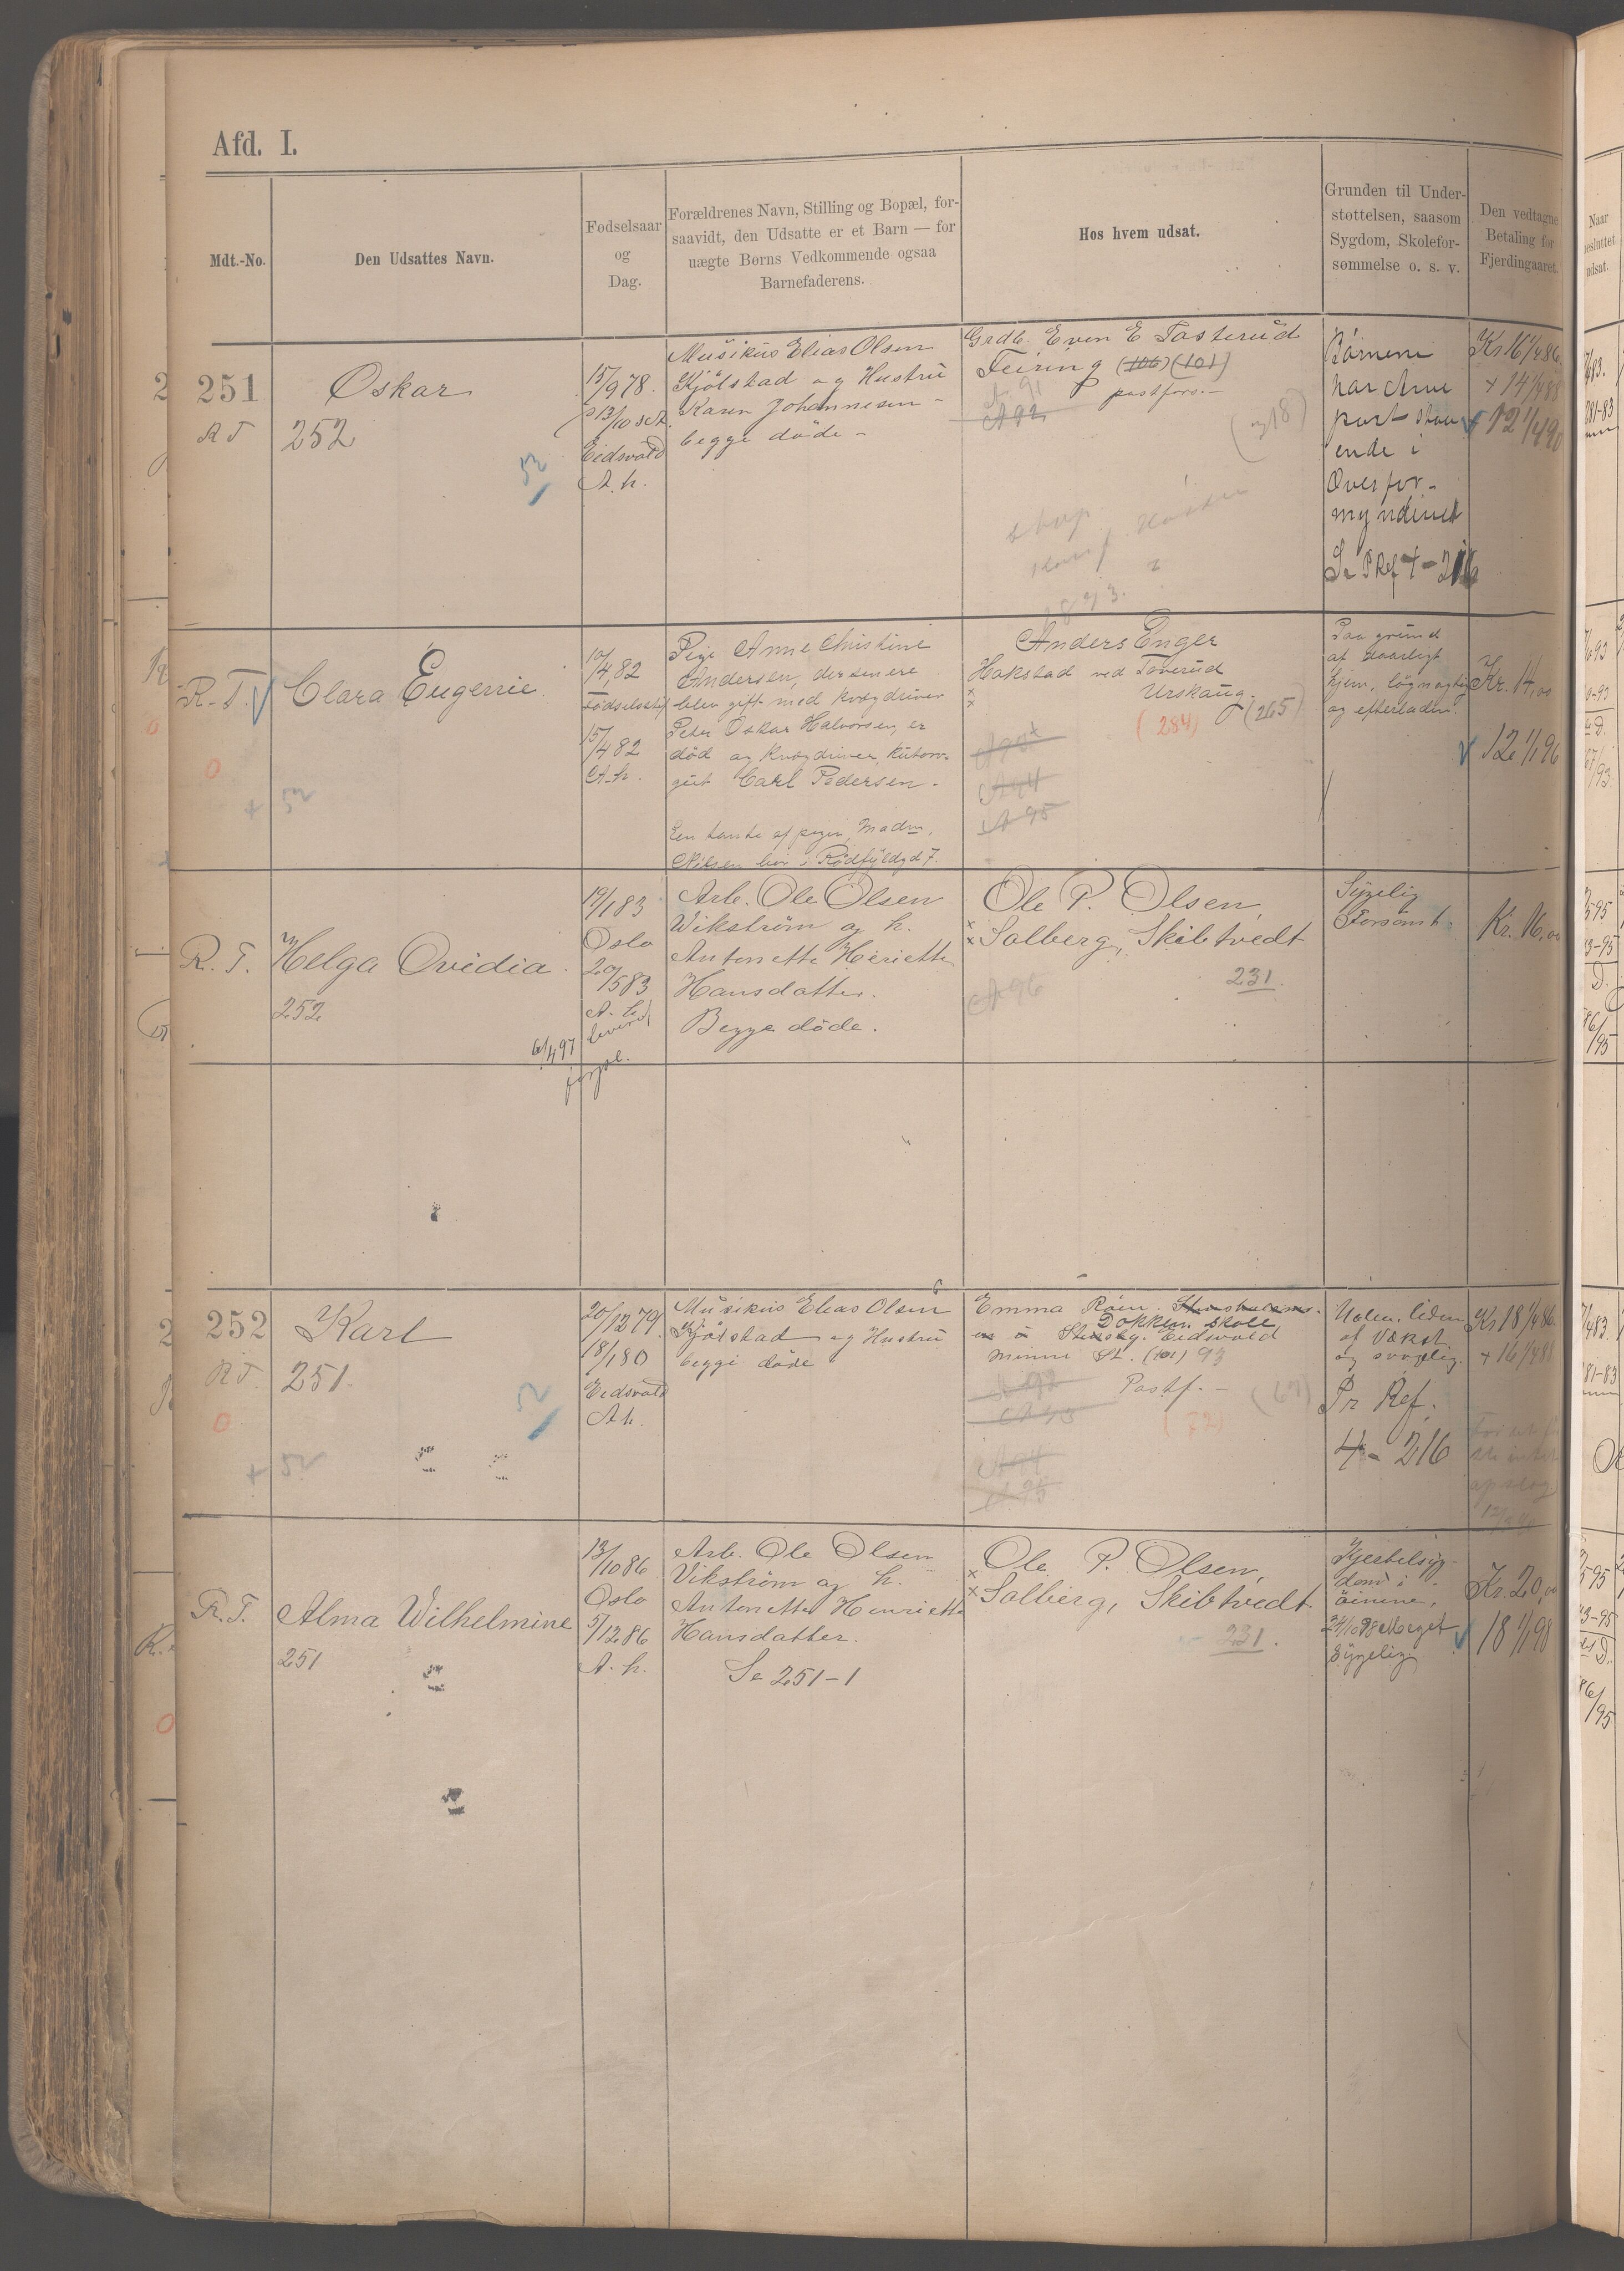 Afd. I.
Mdt.-No.
Den Udsattes Navn.
Fødselsaar
og
Dag.
Forældrenes Navn, Stilling og Bopæl, for-
saavidt, den Udsatte er et Barn — for
uægte Børns Vedkommende ogsaa
Barnefaderens.
Hos hvem udsat.
Grunden til Under-
støttelsen, saasom
Sygdom, Skolefor-
sømmelse o. s. v.
Den vedtagne
Betaling for
Fjerdingaaret.
251
R T
Oskar
252
15/9 78.
13/10
Eidsvold
A. h.
Musikus Elias Olsen
Kjölstad og Hustru
Karen Johannesen -
begge döde -
Grdb. Even E Tasterud
Feiring (106) (101)
A 91
A 92
postfors.-
(318)
Börnene
har Arve
part staa
ende i
Overfor-
myndieriet
Se P Ref 4 - 216
Kr 16 1/4 86
+ 14 1/4 88
12 1/4 90
R. T.
Clara Eugenie
52
10/4 82
Födselsstif
15/4 82
A. h.
Pige Anne Christine
Andersen, der senere
blev gift med kvægdriver
Peter Oskar Halvorsen, er
död og Kvægdriver,
Carl Pedersen.
En tante af pigen, Madm.
Nilsen bor i Rödfyldgd 7.
Anders Enger
Hakstad ved Toverud
Urskaug.
(284) (265)
A 94
A 95
Paa grund
af daarligt
hjem, lögnagtig
og efterladen.
Kr. 14,00
12 1/1 96
R. T.
Helga Ovidia
252
19/1 83
Oslo
20/5 83
A. h.
6/4 97
Arb. Ole Olsen
Wikström og h.
Antonette Heriette
Hansdatter.
Begge döde.
Ole P. Olsen,
Solberg, Skibtvedt
231
A 96
Sygelig
Forsömt.
Kr. 16,00
252
R T
Karl
251.
52
20/12 79.
18/1 80
Eidsvold
A h.
Musikus Elias Olsen
Kjölstad og Hustru
begge döde
Emma Röin.
Dokken skole
Eidsvold
Minne St. (101) 93
Postf. -
(67)
A 94
A 95
liden
af Vækst
og svagelig.
Pr Ref.
4 - 216
Kr 18 1/4 86.
+ 16 1/4 88
R. T.
Alma Wilhelmine
251
13/10 86
Oslo
5/12 86
A. h.
Arb. Ole Olsen
Vikström og h.
Antonette Henriette
Hansdatter.
Se 251-1
Ole P. Olsen,
Solberg, Skibtvedt
231.
Kjertelsyg-
dom i
öinene,
24/10 98 Meget
sygelig
Kr. 20,00
18 1/1 98